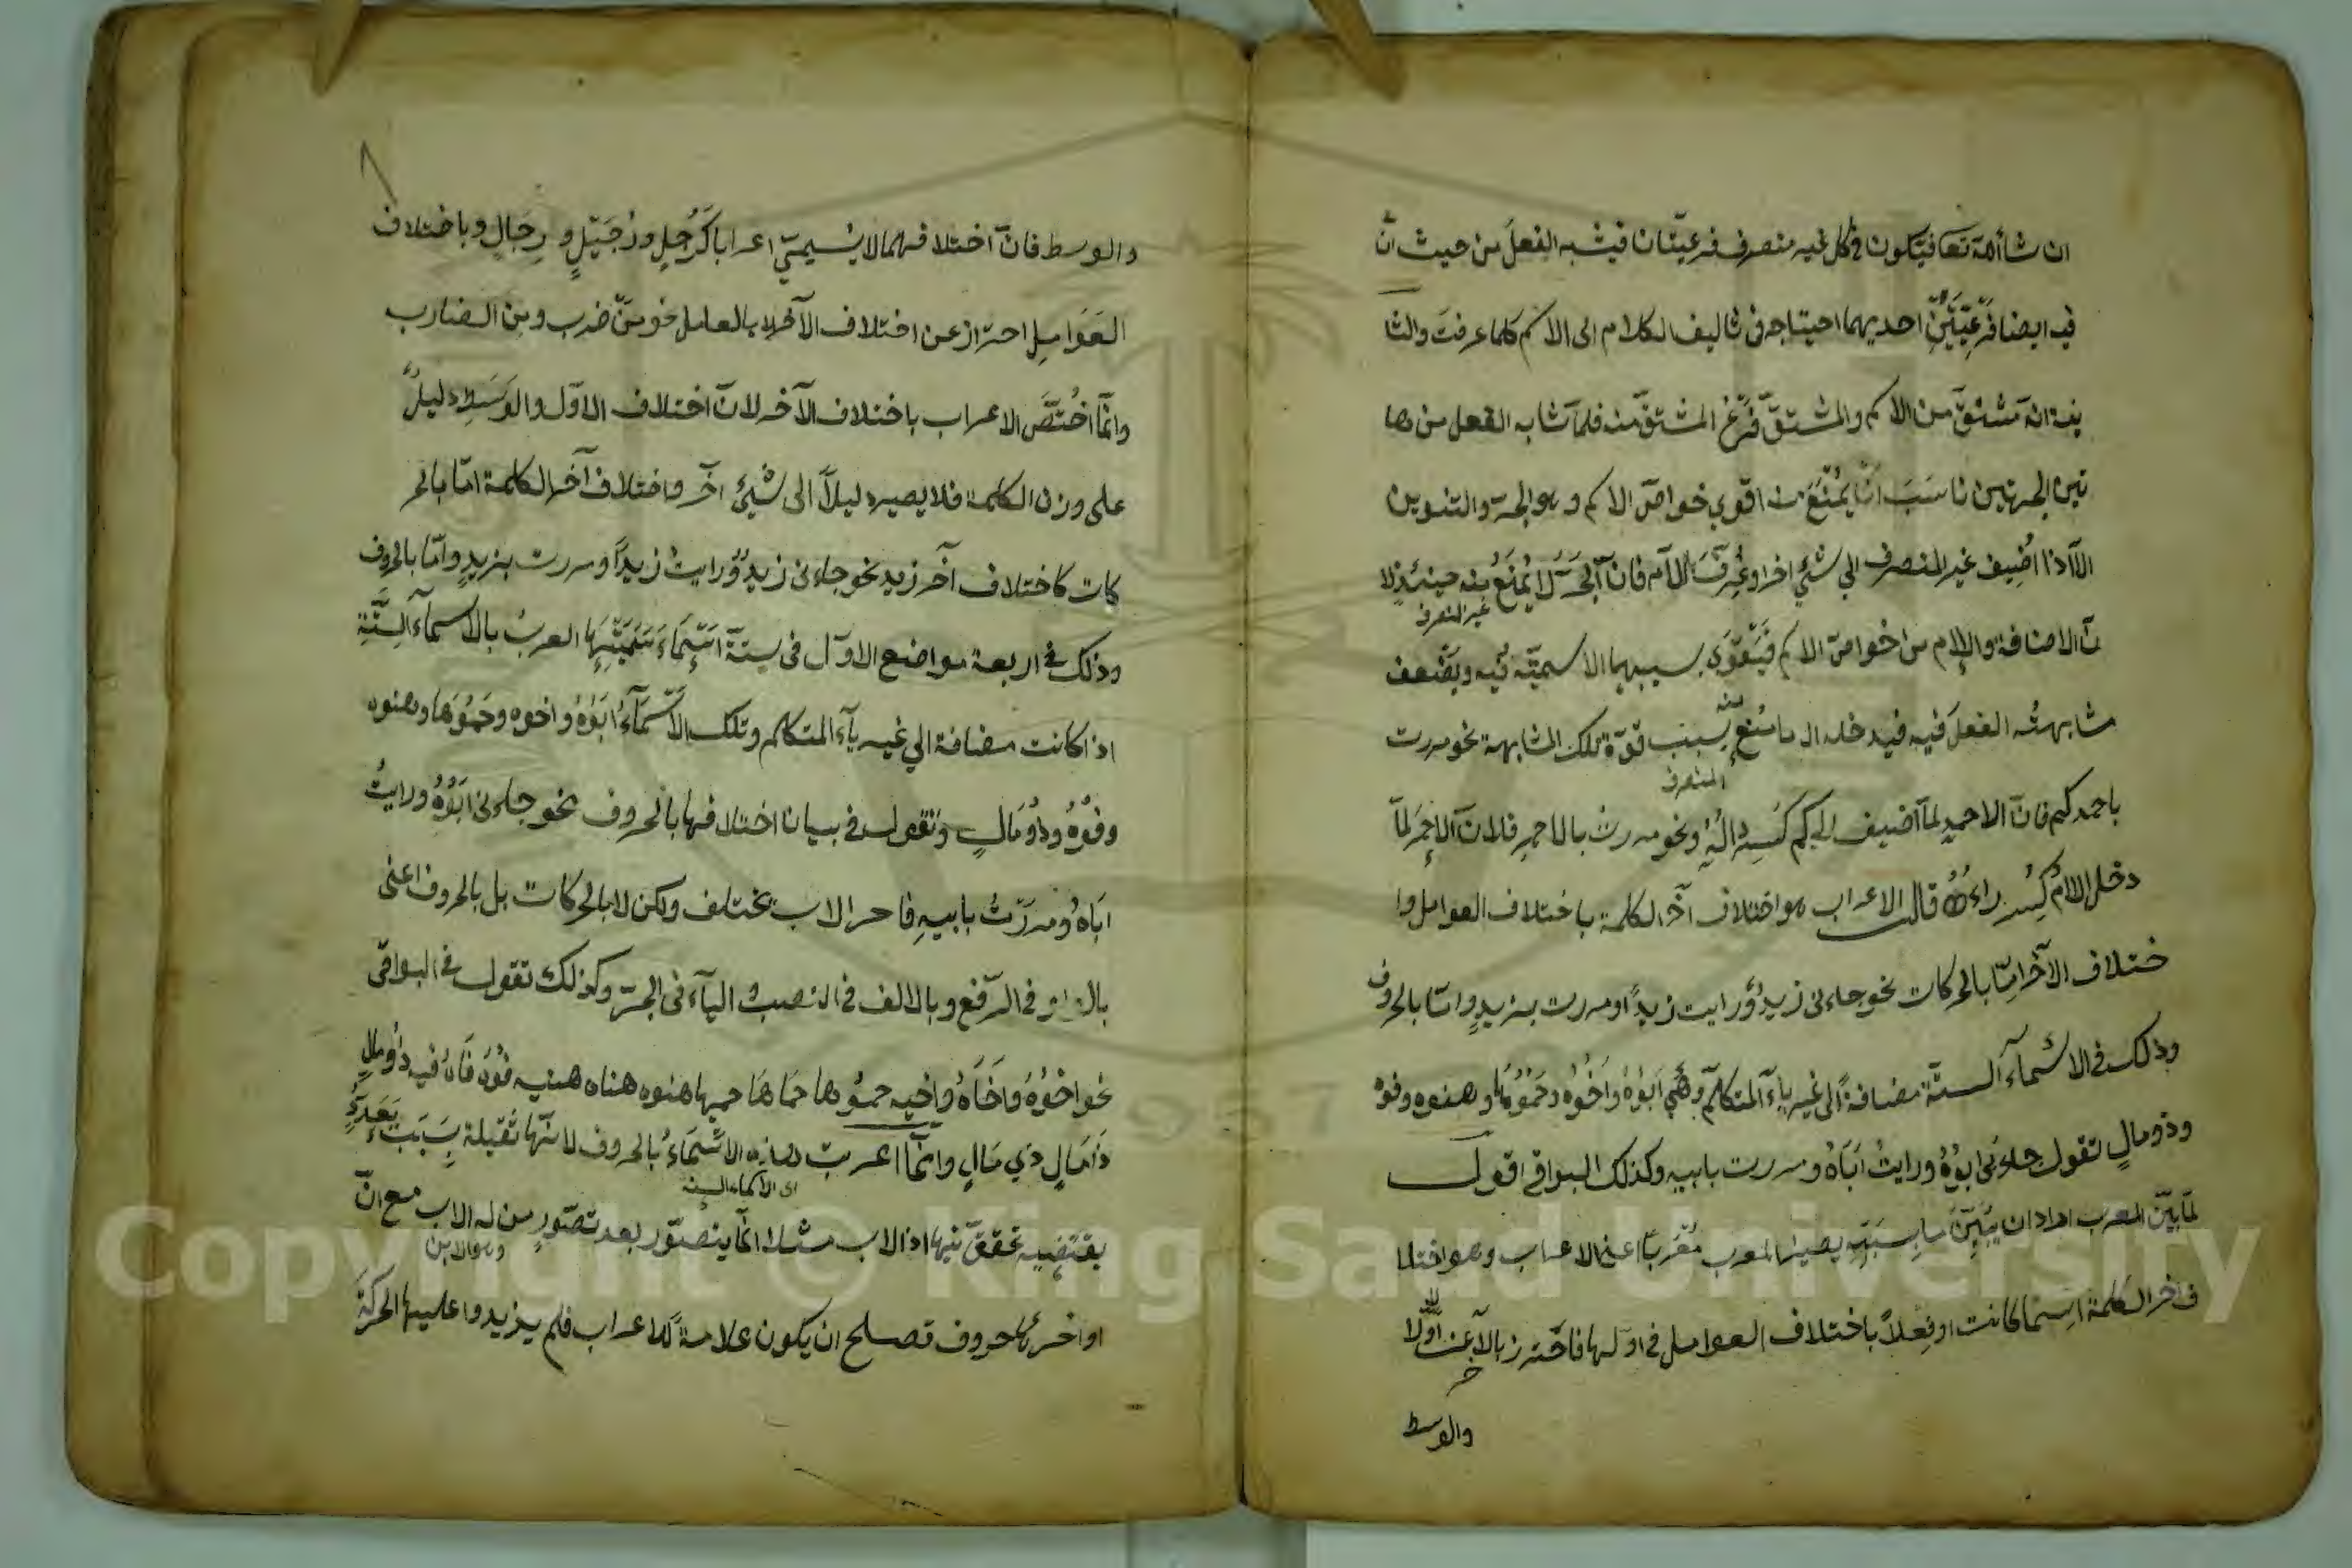 ان شاء الله تعا فيكون في كل غير منصرف فرعيتان فيشبه الفعل من حيث انّ
فيه ايضا فرعيّتين احديهما احتياجه في تاليف الكلام الى الاسم كلما عرفت والثا
نية انه مشتق من الاسم والمشتقّ فرع المشتقّ منه فلما شابه الفعل من ها
تين الجهتين ناسَبَ ان يمنَعَ من اقوي خواصّ الاسم وهو الجرّ والتنوين
الّا اذا اُضِيف غير المنصرف الي شئي اخر او عُرِّفَ باللام فانّ الجَرّ لا يُمنَعُ منه حينئذٍ لا
غير المنصرف
نّ الاضافة والالام من اخواصّ الاسم فيَتَقوّي بسببهما الاسميّة فيه ويَضْعف
مشابهتُه الفعلَ فيه فيدخله ال ما مُنع بسبب قوّة تلك المشابهة نحو مررت
منه
المنصرف
باحمدكم فانّ الاحمد لمّا اضيف الي كم كُسِر دالُه ونحو مررت بالاحمرِ فلانّ الاحمر لمّا
دخل اللامُ كُسِر راءُهُ قال الاعراب هو اختلاف آخر الكلمة باختلاف العوامل وا
ختلاف الآخر امّا بالحركات نحو جاءنى زيدٌ ورايت زيداً ومررت بزيدٍ وامّا بالحروف
وذلك في الاسماء الستّة مضافةً الى غير ياء المتكلّم وهْي اَبَوْهُ واَخُوْه وحَمُوْها وهنوه وفوه
وذو مالٍ تقول جاءنى ابُوْهُ ورايتُ اَبَاهُ ومررت بابيه وكذلك البواقي اقول
لمّا بيّن المعرب اراد ان يُبَيِّنَ ما بِسَبَبِهِ يصير المعرب مُعْرَباً اعني الاعراب وهو اختلا
ف اخر الكلمة اسِماً كانت او فِعلاً باختلاف العوامل في اوّلها فاحَترز بالآخر عن الاوّل
والوسط
والوسط فانّ اختلافهما لا يسميّ اعرابا كَرَجُلٍ ورُجَيْلٍ و رِجَالٍ وباختلاف
العَوَامِلِ احتراز عن اختلاف الآخر لا بالعامل نحو منّ ضرب ومن الضارب
وانّما اخُتَصّ الاعراب باختلاف الآخر لانّ اختلاف الاوّل والوَسَطِ دليلٌ
على وزن الكلمة فلا يصير دليلاً الى شئي آخر واختلاف آخر الكلمة امّا بالحر
كات كاختلاف آخر زيد نحو جاءنى زيدٌ ورايتُ زيداً ومررت بزيدٍ وامّا بالحروف
وذلك في اربعة مواضع الاوّل فى ستة اسْمَاءَ تُسَمِّيْهَا العربُ بالاسماء السِتَّةِ
اذا كانت مضافة الي غير ياء المتكلم وتلك الاسْمَاءُ اَبُوْهُ واخوه وحَمُوْهَا وهنوه
وفُوْهُ وذوُمَالٍ وتقول في بيان اختلافها بالحروف نحو جاءنى ابُوْهُ ورايتُ
اَبَاهُ ومررتُ بابيهِ فاخر الاب يختلف ولكن لا بالحركات بل بالحروف اعنى
بالواو في الرّفع وبالالف في النصب و الياء فى الجرّ وكذلك تقول في البواقى
نحو اخُوْهُ وَاَخَاهُ واخيه حمُوها حَمَاهَا حميها هنوه هناه هنيه فُوْهُ فَاهُ فيه ذوُمالٍ
ذَامَالٍ ذِي مَالٍ وانّما اعربت هذه الاسْمَاءُ بالحروف لانّها ثقيلة بِسَبَبِ تعدّدٍ
اى الاسماء الستة
يقتضيه تحقق فيها اذ الاب مثلا انّما يتصّور بعد تصّورِ من له الاب مع انّ
وهو الابن
اواخرها حروف تصلح ان يكون علامةً للاعراب فلم يزيدوا عليها الحركةَ